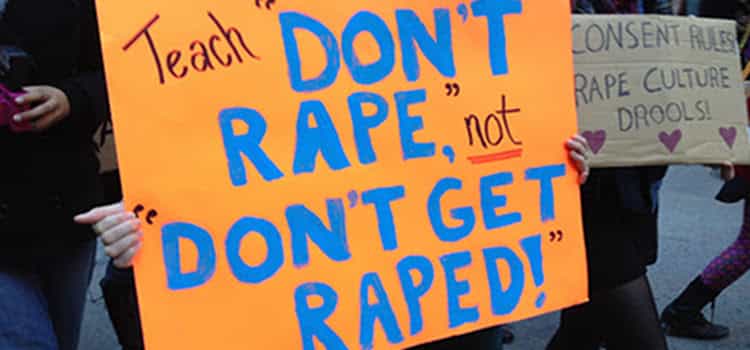 Teach "DON'T
RAPE," not
"DON'T GET
RAPED!"
CONSENT RULES!
RAPE CULTURE
DROOLS!